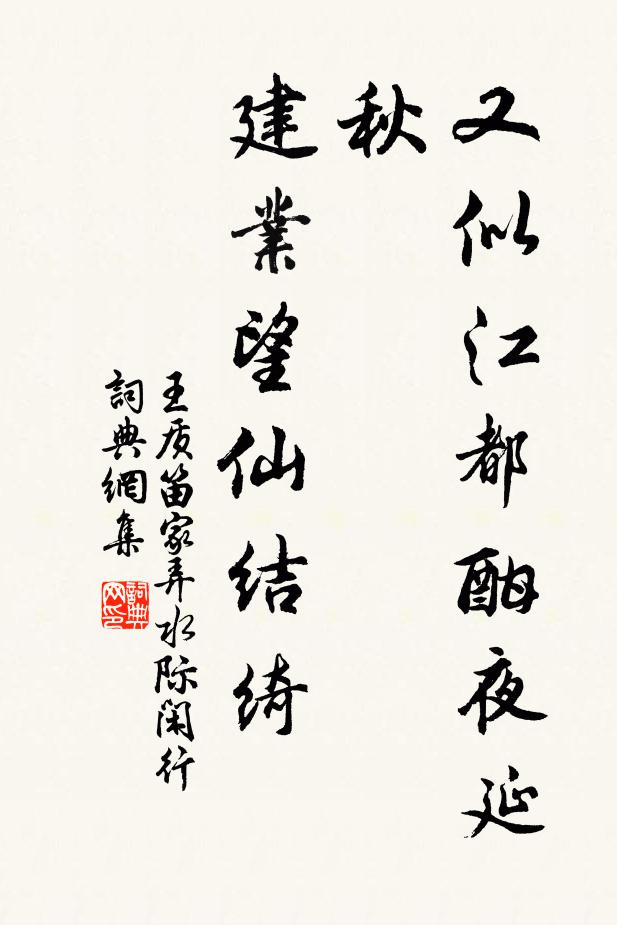 又似江都酣夜延
秋
建業望仙結綺
王质笛家弄水际闲行
詞典網集
詞典
网印